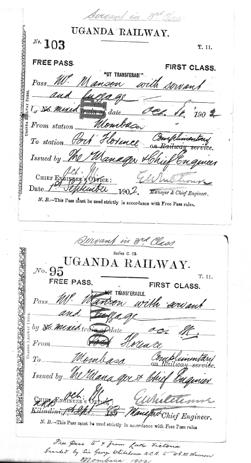 Servant in 3rd Class
UGANDA RAILWAY.
No. 103
T. 11.
FREE PASS.
FIRST CLASS.
NOT TRANSFERABLE
Pass Mr. Manson with servant
and luggage
mixed
Oct. 190 2
From station Mombasa
To station Port Florence Complimentary
on Railway service.
Issued by The Manager & Chief Engineer
CHIEF ENGINEER'S OFFICE:
Date 1st September 190 2. Manager & Chief Engineer.
N.B.—This Pass must be used strictly in accordance with Free Pass rules.
Servant in 3rd Class
UGANDA RAILWAY.
No. 95
T. 11.
FREE PASS
FIRST CLASS.
NOT TRANSFERABLE.
Pass Mr. Manson with servant
and luggage
by mixed
Florence
To Mombasa Complimentary
on Railway service.
Issued by The Manager & Chief Engineer
CHIEF ENGINEER'S OFFICE
Kilindini Sept. Manager Chief Engineer.
N.B.—This Pass must be used strictly in accordance with Free Pass rules.
Free pass to & from Lake Victoria
granted by Sir George Whitehouse K.C.B. to
Mombasa 1902.